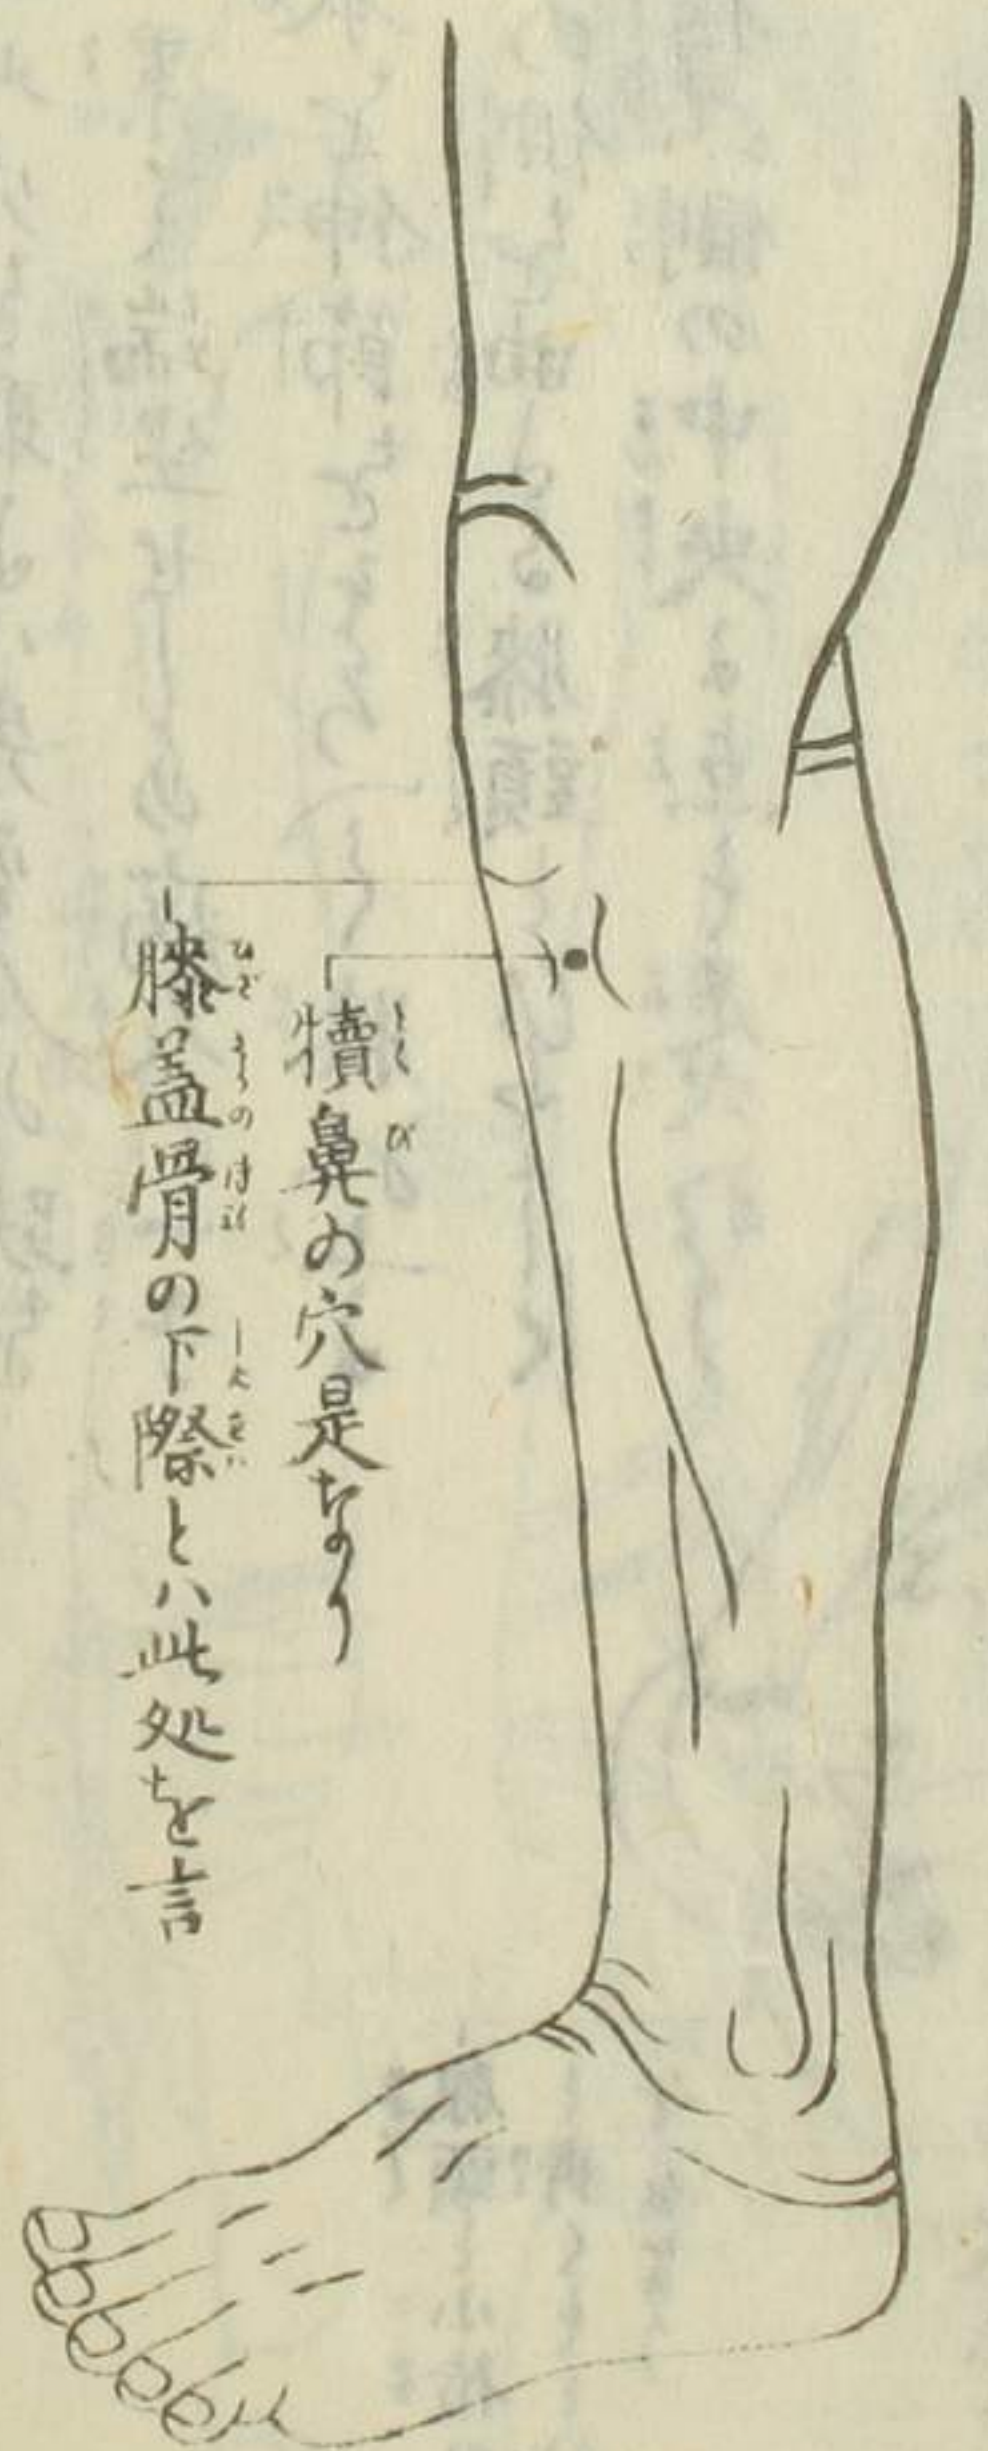 犢鼻の穴是なり
膝蓋骨の下際とハ此処を言